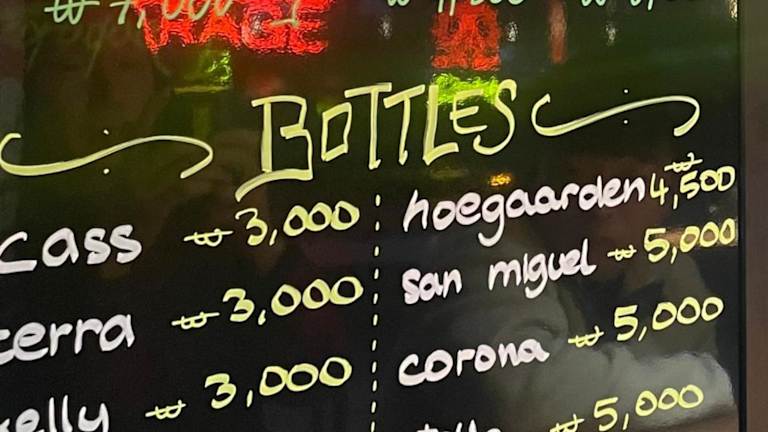 ₩ 7,000
BOTTLES
cass ₩ 3,000
hoegaarden ₩ 4,500
terra ₩ 3,000
san miguel ₩ 5,000
kelly ₩ 3,000
corona ₩ 5,000
₩ 5,000